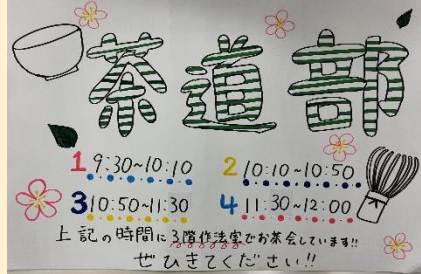 茶道部
1 9:30~10:10 2 10:10~10:50
3 10:50~11:30 4 11:30~12:00
上記の時間に3階作法室でお茶会しています!!
ぜひきてください!!